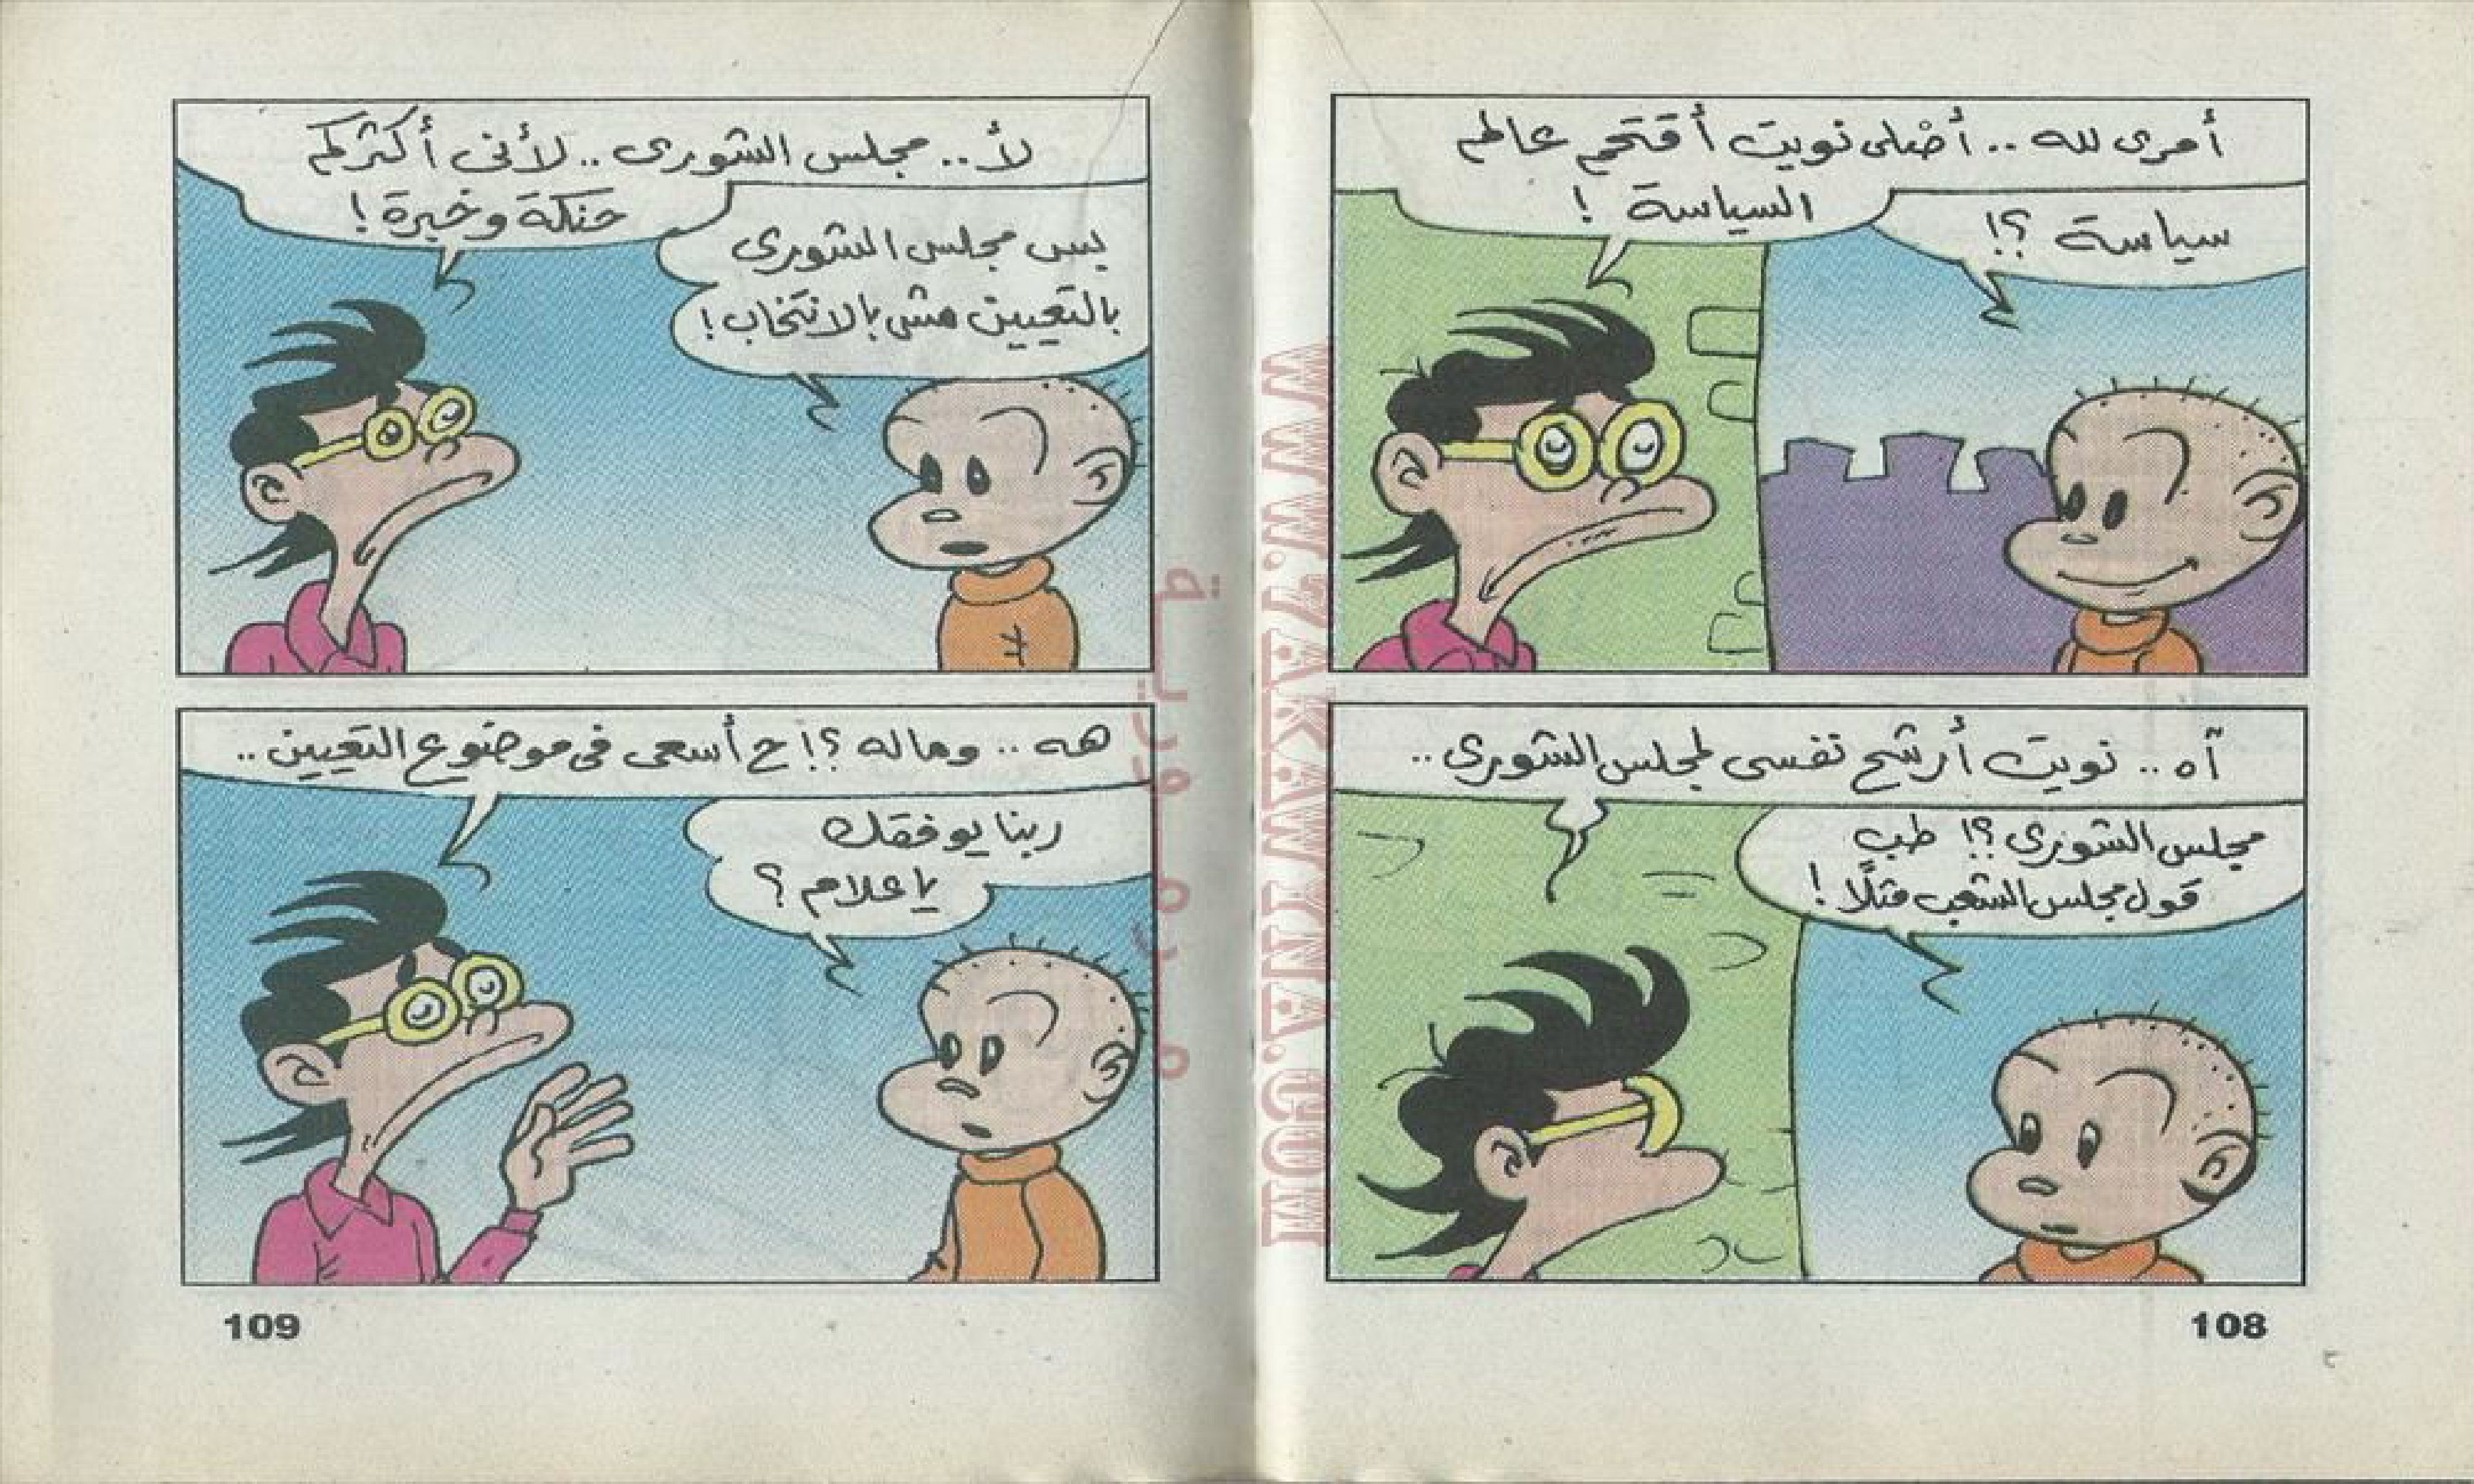 أمرى لله .. أصْلى نويت أقتحم عالم
السياسة !
سياسة ؟!
آه .. نويت أرشح نفسى لمجلس الشورى ..
مجلس الشورى ؟! طب
قول مجلس الشعب مثلًا !
108
لأ .. مجلس الشورى .. لأنى أكثركم
حنكة وخبرة !
بس مجلس الشورى
بالتعيين مش بالانتخاب !
هه .. وماله ؟! ح أسعى فى موضوع التعيين ..
ربنا يوفقك
يا علام ؟
109
WWW.7AKAWINA.COM